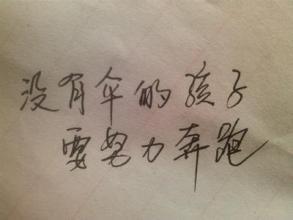 没有伞的孩子
要努力奔跑